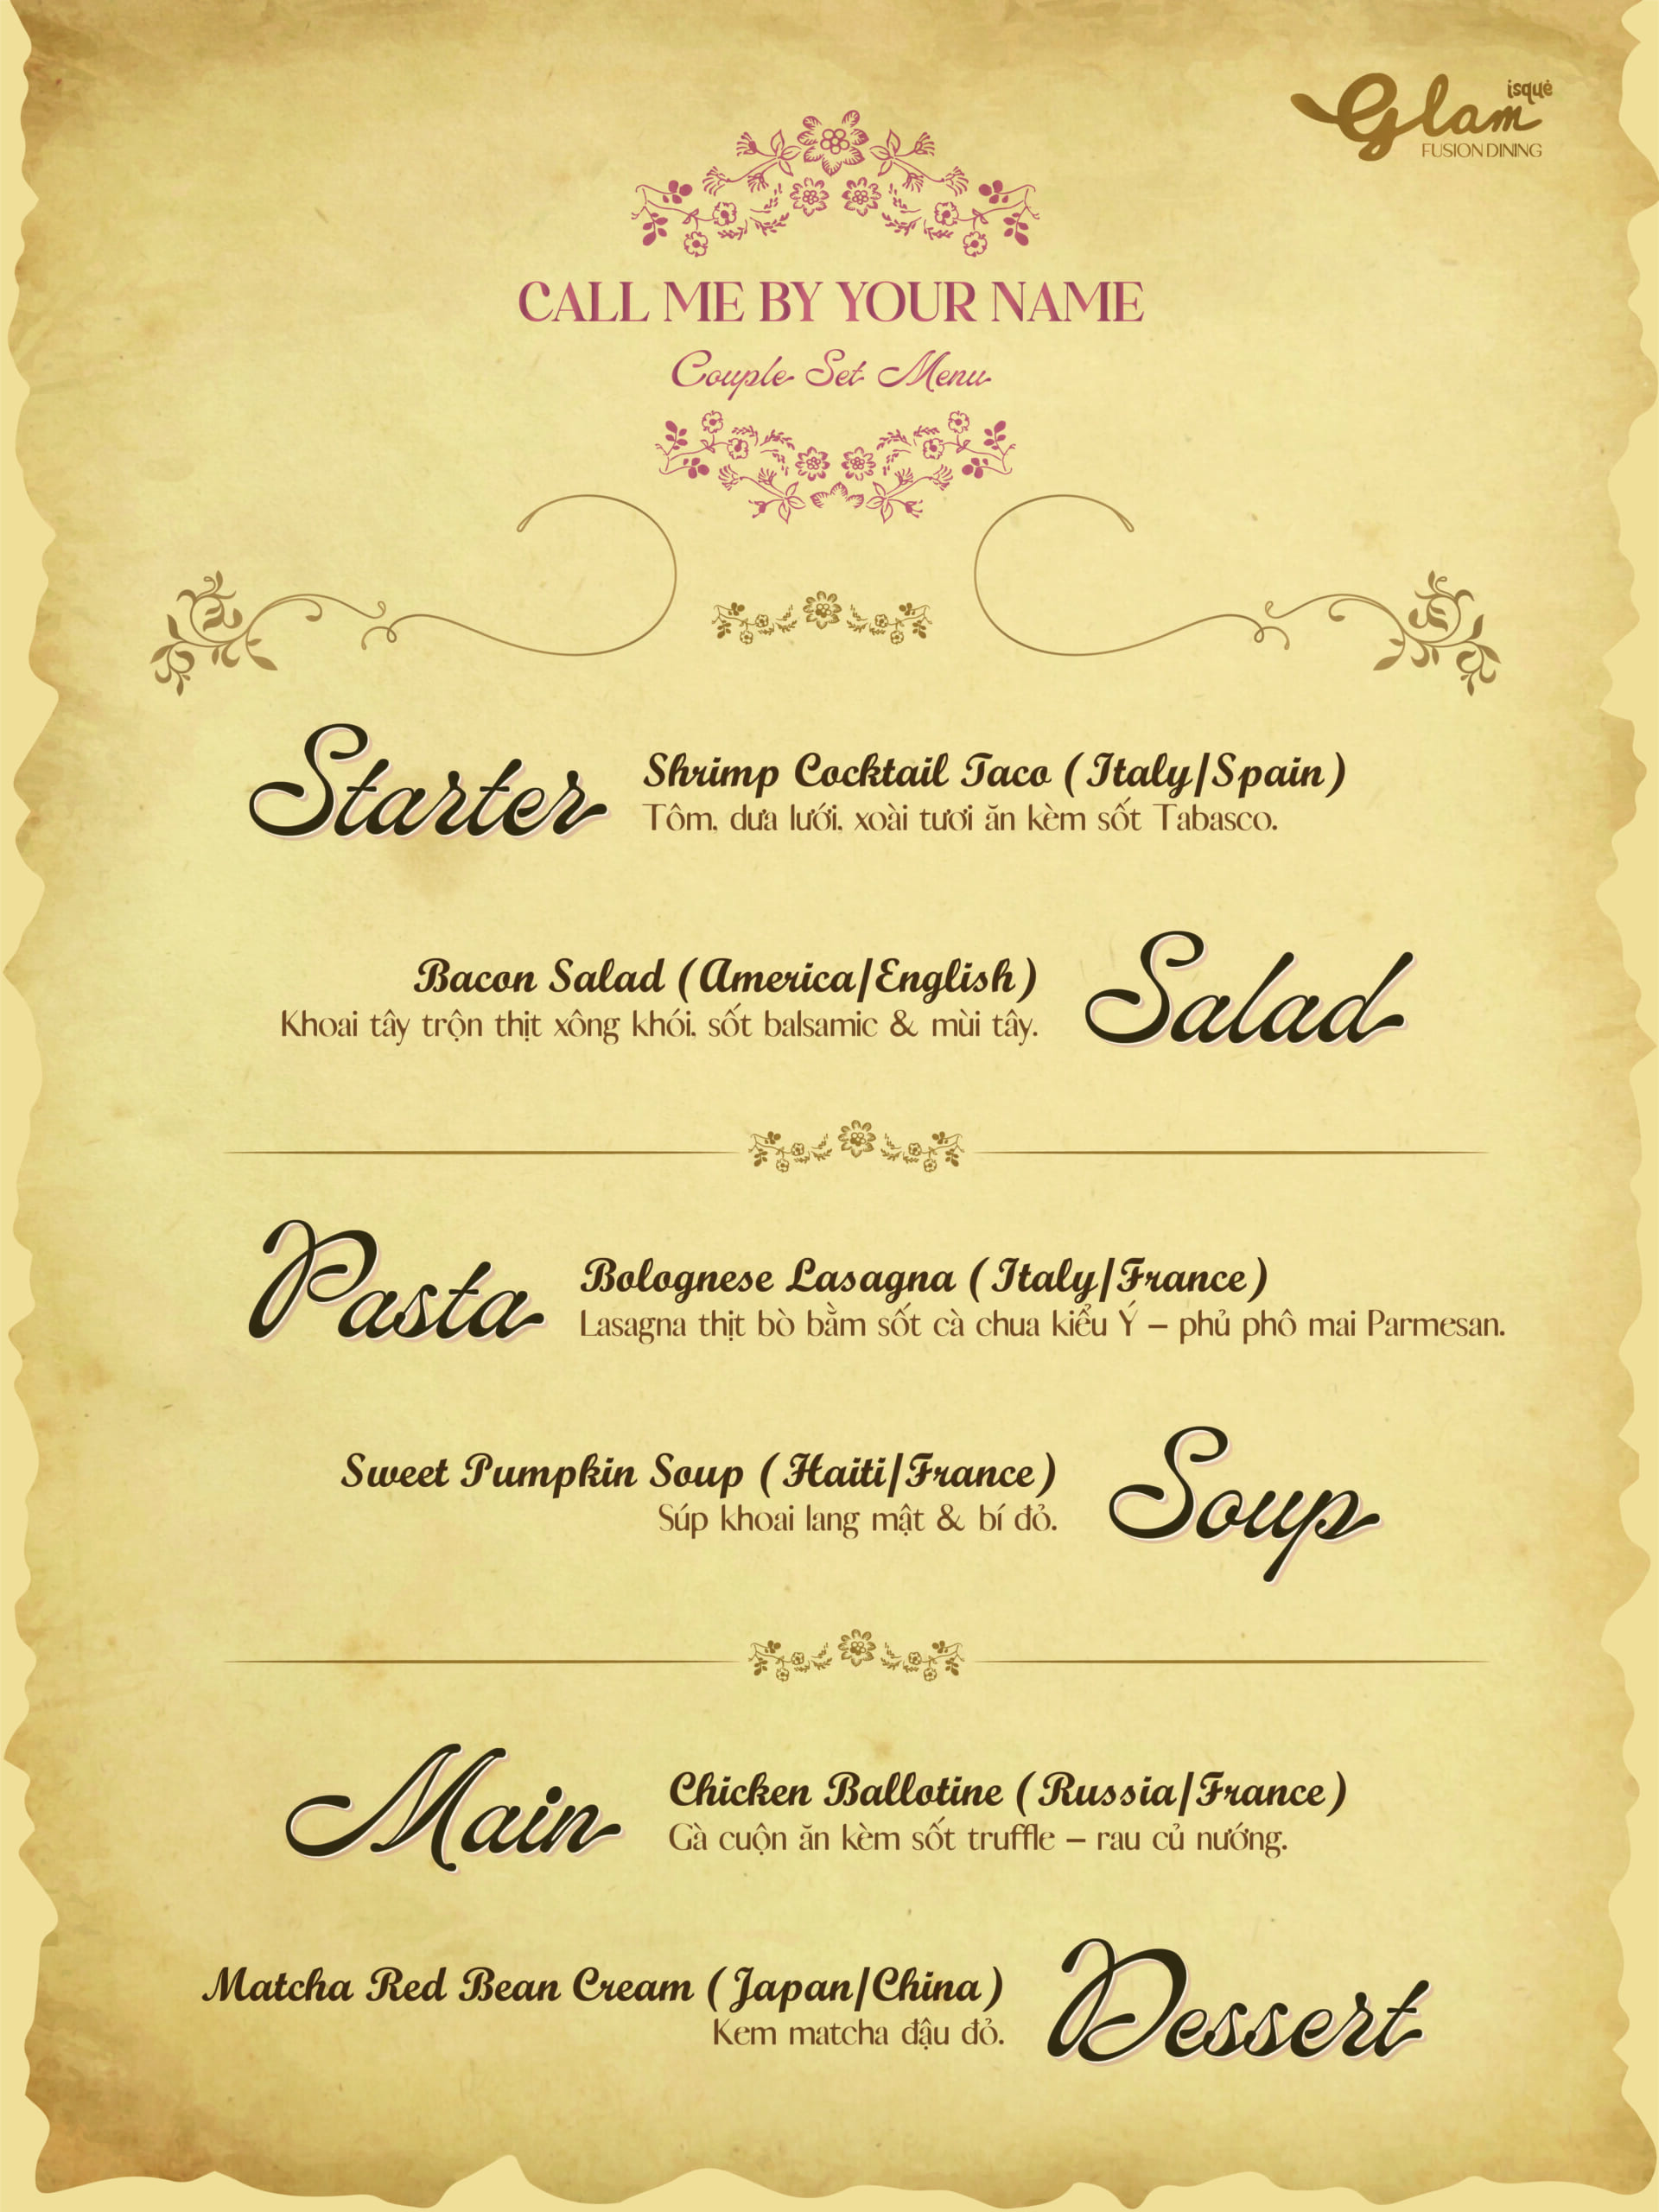 isquė
Glam
FUSION DINING
CALL ME BY YOUR NAME
Couple Set Menu
Starter
Shrimp Cocktail Taco (Italy/Spain)
Tôm, dưa lưới, xoài tươi ăn kèm sốt Tabasco.
Bacon Salad (America/English)
Khoai tây trộn thịt xông khói, sốt balsamic & mùi tây.
Salad
Pasta
Bolognese Lasagna (Italy/France)
Lasagna thịt bò bằm sốt cà chua kiểu Ý – phủ phô mai Parmesan.
Sweet Pumpkin Soup (Haiti/France)
Súp khoai lang mật & bí đỏ.
Soup
Main
Chicken Ballotine (Russia/France)
Gà cuộn ăn kèm sốt truffle – rau củ nướng.
Matcha Red Bean Cream (Japan/China)
Kem matcha đậu đỏ.
Dessert